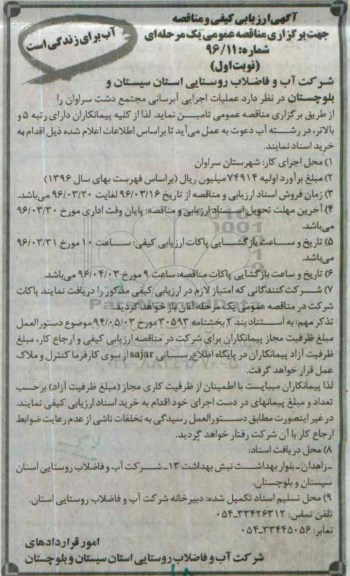 آگهی ارزیابی کیفی و مناقصه
جهت برگزاری مناقصه عمومی یک مرحله‌ای
شماره: ۹۶/۱۱
(نوبت اول)
آب برای زندگی است
شرکت آب و فاضلاب روستایی استان سیستان و
بلوچستان در نظر دارد عملیات اجرایی آبرسانی مجتمع دشت سراوان را
از طریق برگزاری مناقصه عمومی تامین نماید. لذا از کلیه پیمانکاران دارای رتبه ۵ و
بالاتر، در رشته آب دعوت به عمل می‌آید تا براساس اطلاعات اعلام شده ذیل اقدام به
خرید اسناد نمایند.
۱) محل اجرای کار: شهرستان سراوان
۲) مبلغ برآورد اولیه ۷۴۹۱۴ میلیون ریال (براساس فهرست بهای سال ۱۳۹۶)
۳) زمان فروش اسناد ارزیابی و مناقصه از تاریخ ۹۶/۰۳/۱۶ لغایت ۹۶/۰۳/۲۰ می‌باشد.
۴) آخرین مهلت تحویل اسناد ارزیابی و مناقصه: پایان وقت اداری مورخ ۹۶/۰۳/۳۰
می‌باشد.
۵) تاریخ و ساعت بازگشایی پاکات ارزیابی کیفی: ساعت ۱۰ مورخ ۹۶/۰۳/۳۱
می‌باشد.
۶) تاریخ و ساعت بازگشایی پاکات مناقصه: ساعت ۹ مورخ ۹۶/۰۴/۰۳ می‌باشد.
۷) شرکت‌کنندگانی که امتیاز لازم در ارزیابی کیفی مذکور را دریافت نمایند پاکات
شرکت در مناقصه عمومی یک مرحله‌ای آنان باز خواهد گردید.
تذکر مهم: به استناد بند ۲ بخشنامه ۳۰۵۹۳ مورخ ۹۴/۰۵/۰۳ موضوع دستورالعمل
مبلغ ظرفیت مجاز پیمانکاران برای شرکت در مناقصه ارزیابی کیفی و ارجاع کار، مبلغ
ظرفیت آزاد پیمانکاران در پایگاه اطلاع‌رسانی sajar از سوی کارفرما کنترل و ملاک
عمل قرار خواهد گرفت.
لذا پیمانکاران میبایست با اطمینان از ظرفیت کاری مجاز (مبلغ ظرفیت آزاد) برحسب
تعداد و مبلغ پیمانهای در دست اجرای خود اقدام به خرید اسناد ارزیابی کیفی نمایند.
در غیر اینصورت مطابق دستورالعمل رسیدگی به تخلفات ناشی از عدم رعایت ضوابط
ارجاع کار با آن شرکت رفتار خواهد گردید.
۸) محل دریافت اسناد:
-زاهدان-بلوار بهداشت نبش بهداشت ۱۳-شرکت آب و فاضلاب روستایی استان
سیستان و بلوچستان.
۹) محل تسلیم اسناد تکمیل شده: دبیرخانه شرکت آب و فاضلاب روستایی استان.
تلفن تماس: ۳۳۴۲۶۳۱۲-۰۵۴
نمابر: ۳۳۴۴۵۰۵۶-۰۵۴
امور قراردادهای
شرکت آب و فاضلاب روستایی استان سیستان و بلوچستان